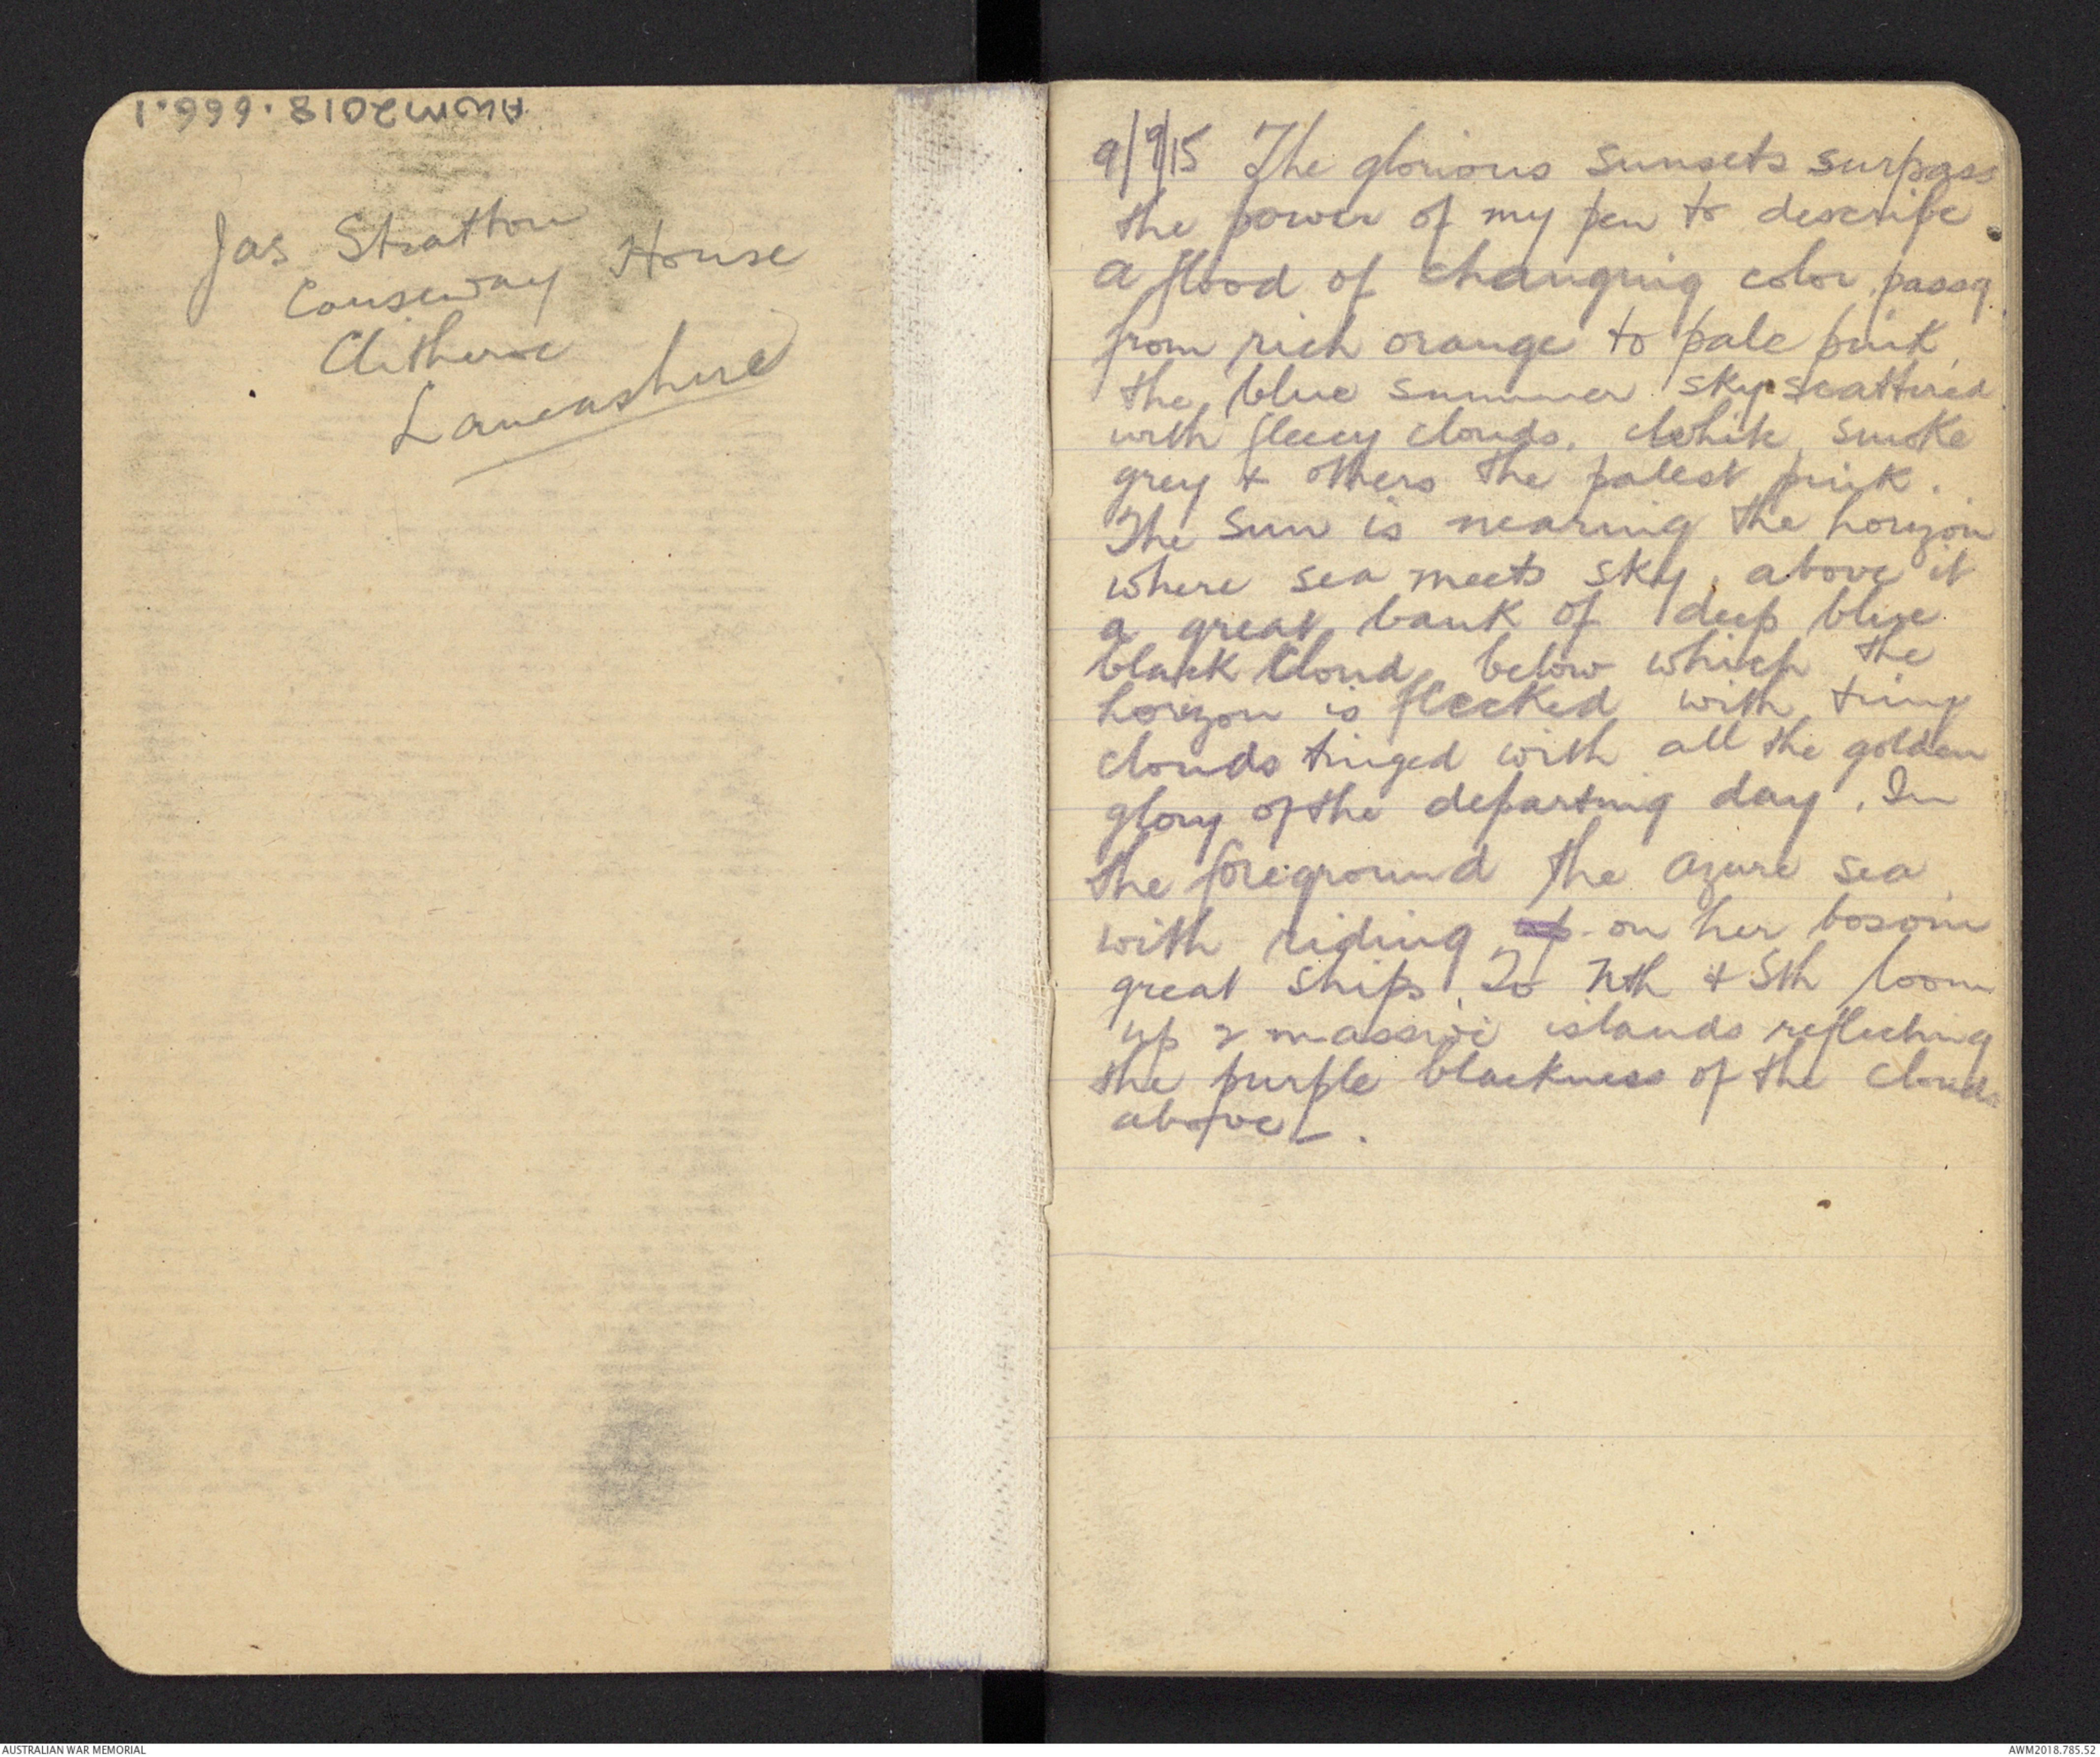 AWM2018.666.1
Jas Stratton
Causeway House
Clitheroe
Lancashire
9/9/15 The glorious sunsets surpass
the power of my pen to describe
a flood of changing color passg
from rich orange to pale pink,
the blue summer sky scattered
with fleecy clouds. White, smoke
grey & others the palest pink.
The sun is nearing the horizon
where sea meets sky, above it
a great bank of deep blue
black cloud, below which the
horizon is flecked with tiny
clouds tinged with all the golden
glory of the departing day. In
the foreground the azure sea
with riding on her bosom
great ships. To Nth & Sth loom
up 2 massive islands reflecting
the purple blackness of the clouds
above_.
AUSTRALIAN WAR MEMORIAL
AWM2018.785.52